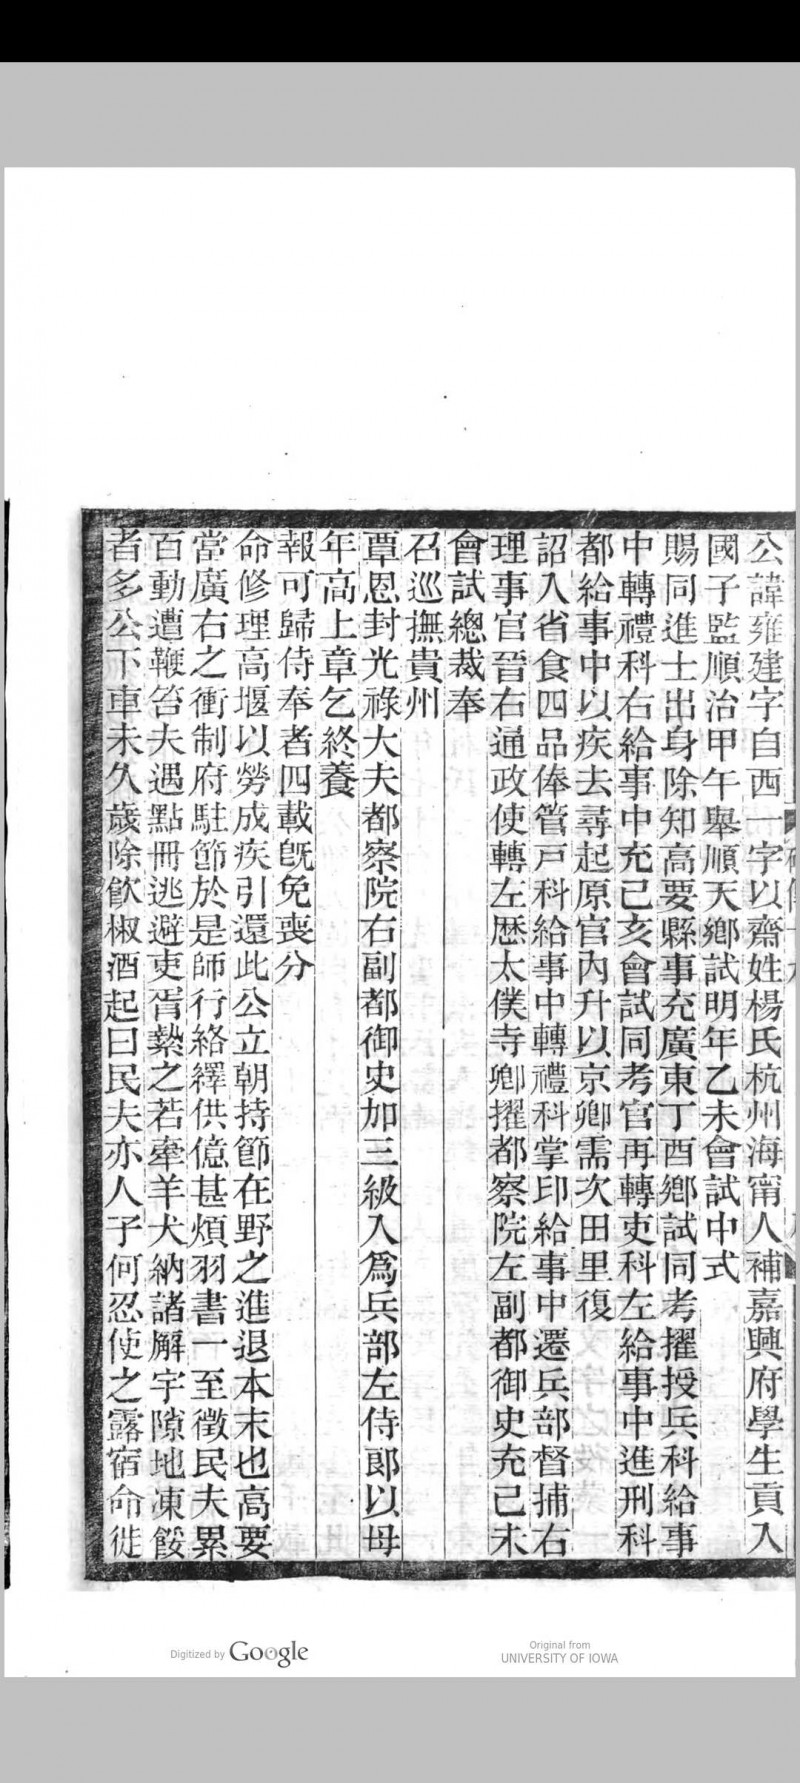 公諱雍建字自西一字以齋姓楊氏杭州海甯人補嘉興府學生貢入
國子監順治甲午舉順天鄉試明年乙未會試中式
賜同進士出身除知高要縣事充廣東丁酉鄉試同考擢授兵科給事
中轉禮科右給事中充己亥會試同考官再轉吏科左給事中進刑科
都給事中以疾去尋起原官內升以京卿需次田里復
詔入省食四品俸管戸科給事中轉禮科掌印給事中遷兵部督捕右
理事官晉右通政使轉左歷太僕寺卿擢都察院左副都御史充己未
會試總裁奉
召巡撫貴州
覃恩封光祿大夫都察院右副都御史加三級入爲兵部左侍郎以母
年高上章乞終養
報可歸侍奉者四載旣免喪分
命修理高堰以勞成疾引還此公立朝持節在野之進退本末也高要
當廣右之衝制府駐節於是師行絡繹供億甚煩羽書一至徵民夫累
百動遭鞭笞夫遇點冊逃避吏胥縶之若牽羊犬納諸廨宇隙地凍餒
者多公下車未久歲除飮椒酒起曰民夫亦人子何忍使之露宿命徙
Digitized by Google
Original from
UNIVERSITY OF IOWA